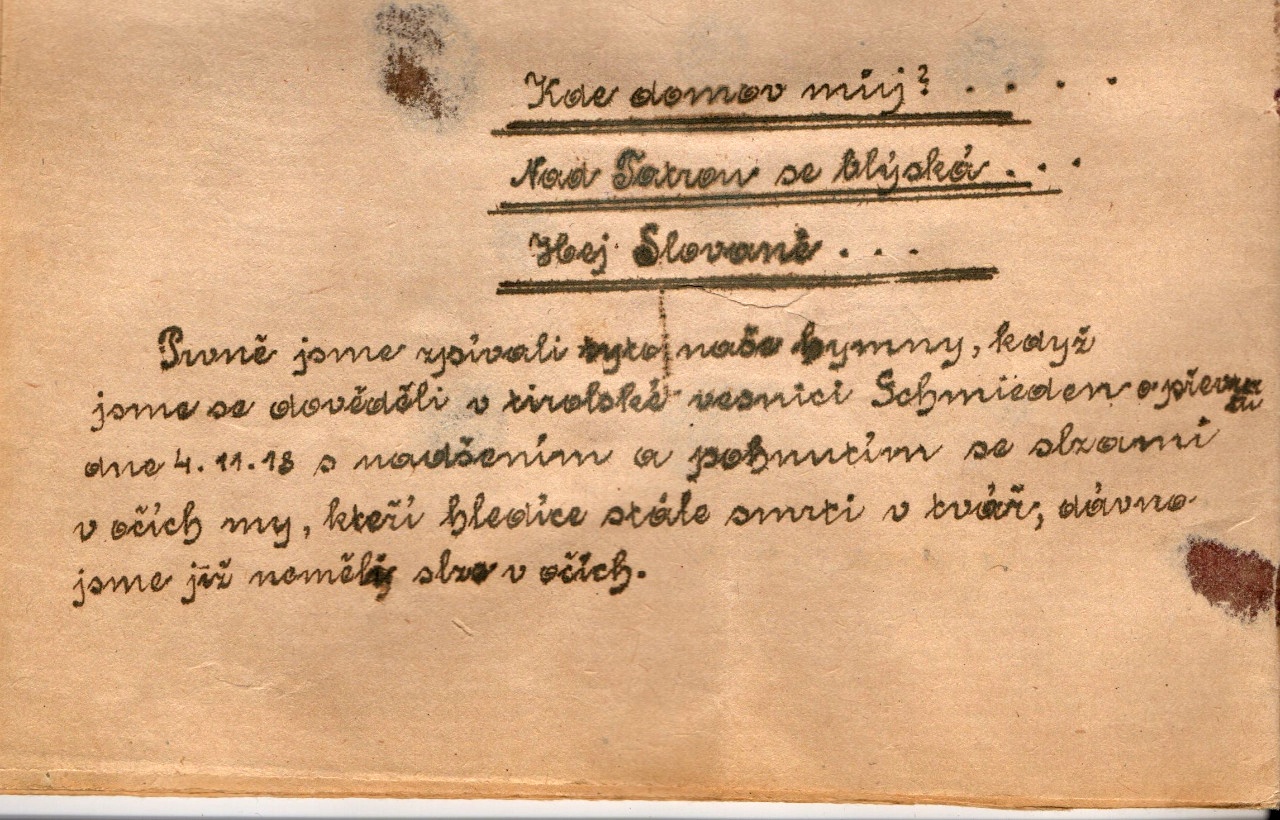 Kde domov můj? . . . .
Nad Tatrou se blýská . . .
Hej Slované . . .
Prvně jsme zpívali tyto naše hymny, když
jsme se dověděli v tirolské vesnici Schmieden o převratu
dne 4.11.18 s nadšením a pohnutím se slzami
v očích my, kteří hledíce stále smrti v tvář, dávno
jsme již neměli slze v očích.